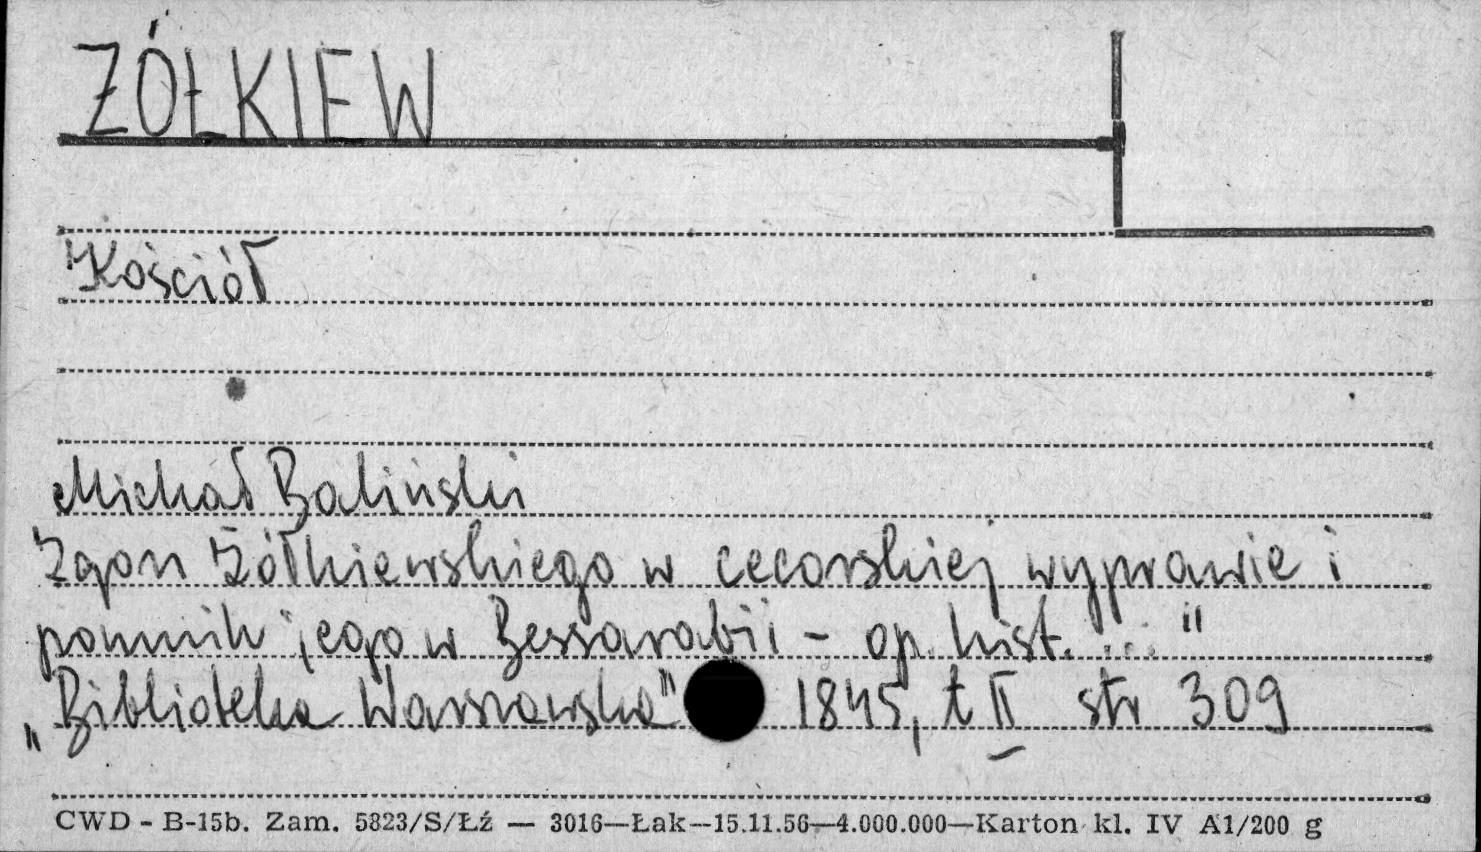 ŻÓŁKIEW
Kościół
Michał Baliński
Zgon Żółkiewskiego w cecorskiej wyprawie i
pomnik jego w Bessarabii – op. hist. ... "
„Biblioteka Warszawska" 1845, t II str 309
CWD - B-15b. Zam. 5823/S/Łź — 3016—Łak—15.11.56—4.000.000—Karton kl. IV A1/200 g